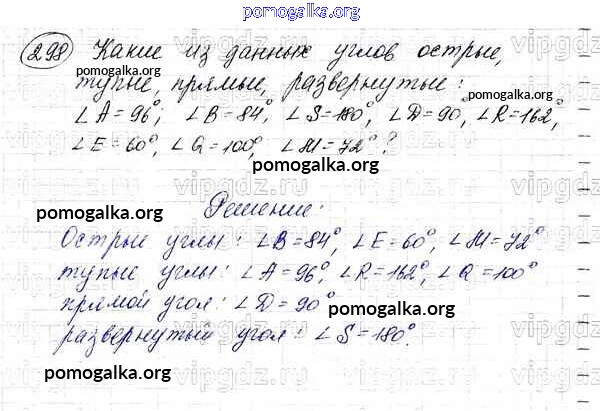 pomogalka.org
298 Какие из данных углов острые,
pomogalka.org
тупые, прямые, развернутые:
pomogalka.org
∠A=96°, ∠B=84°, ∠S=180°, ∠D=90°, ∠R=162°,
∠E=60°, ∠Q=100°, ∠M=72°?
pomogalka.org
pomogalka.org
Решение:
Острые углы: ∠B=84°, ∠E=60°, ∠M=72°
тупые углы: ∠A=96°, ∠R=162°, ∠Q=100°
pomogalka.org
прямой угол: ∠D=90°
pomogalka.org
развернутый угол: ∠S=180°.
pomogalka.org
vipgdz.ru